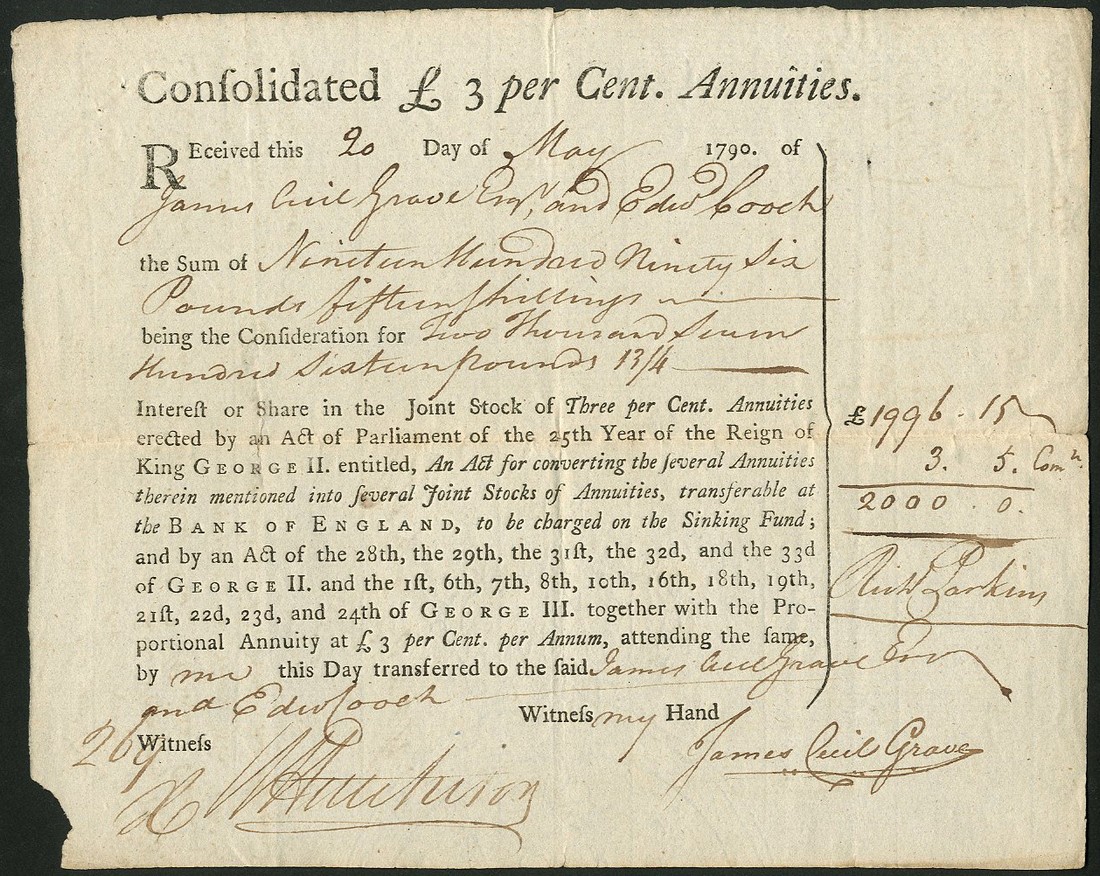 Conſolidated £ 3 per Cent. Annuities.
REceived this 20 Day of May 1790. of
James Cecil Grave Esqr, and Edwd Cooch
the Sum of Nineteen Hundred Ninety Six
Pounds fifteen shillings
being the Conſideration for Two Thousand Seven
Hundred Sixteen pounds 13/4
Intereſt or Share in the Joint Stock of Three per Cent. Annuities
erected by an Act of Parliament of the 25th Year of the Reign of
King GEORGE II. entitled, An Act for converting the ſeveral Annuities
therein mentioned into ſeveral Joint Stocks of Annuities, transferable at
the BANK OF ENGLAND, to be charged on the Sinking Fund;
and by an Act of the 28th, the 29th, the 31ſt, the 32d, and the 33d
of GEORGE II. and the 1ſt, 6th, 7th, 8th, 10th, 16th, 18th, 19th,
21ſt, 22d, 23d, and 24th of GEORGE III. together with the Pro-
portional Annuity at £ 3 per Cent. per Annum, attending the ſame,
by me this Day transferred to the ſaid James Cecil Grave Esqr
and Edwd Cooch
Witneſs my Hand
James Cecil Grave
Witneſs
Hutchison
£1996. 15
3. 5. Comn.
2000. 0.
Richd Larkins